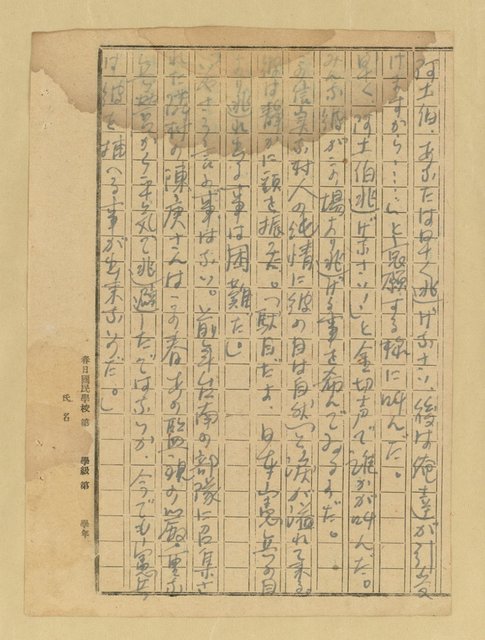 阿土伯、あなたは早く逃げなさい、後は俺達が引受
けますから……」と哀願する様に叫んだ。
早く、阿土伯逃げなさい！」と金切声で誰かが叫んだ。
みんな彼がこの場より逃げる事を希んでゐるのだ。
な村人の純情に彼の目は自然と涙が溢れて来る
彼は静かに頭を振る。「駄目だよ、日本憲兵の目
より逃れ出る事は困難だ。」
いやさう言ふ事はない。前年台南の部隊に召集さ
れた隣村の陳庚さんは、この春あの監視の厳重な
兵舎から平気で逃避したではないか、今でも憲兵
は彼を捕へる事が出来ないのだ。」
春日國民學校 第 學級 第 學年
氏名